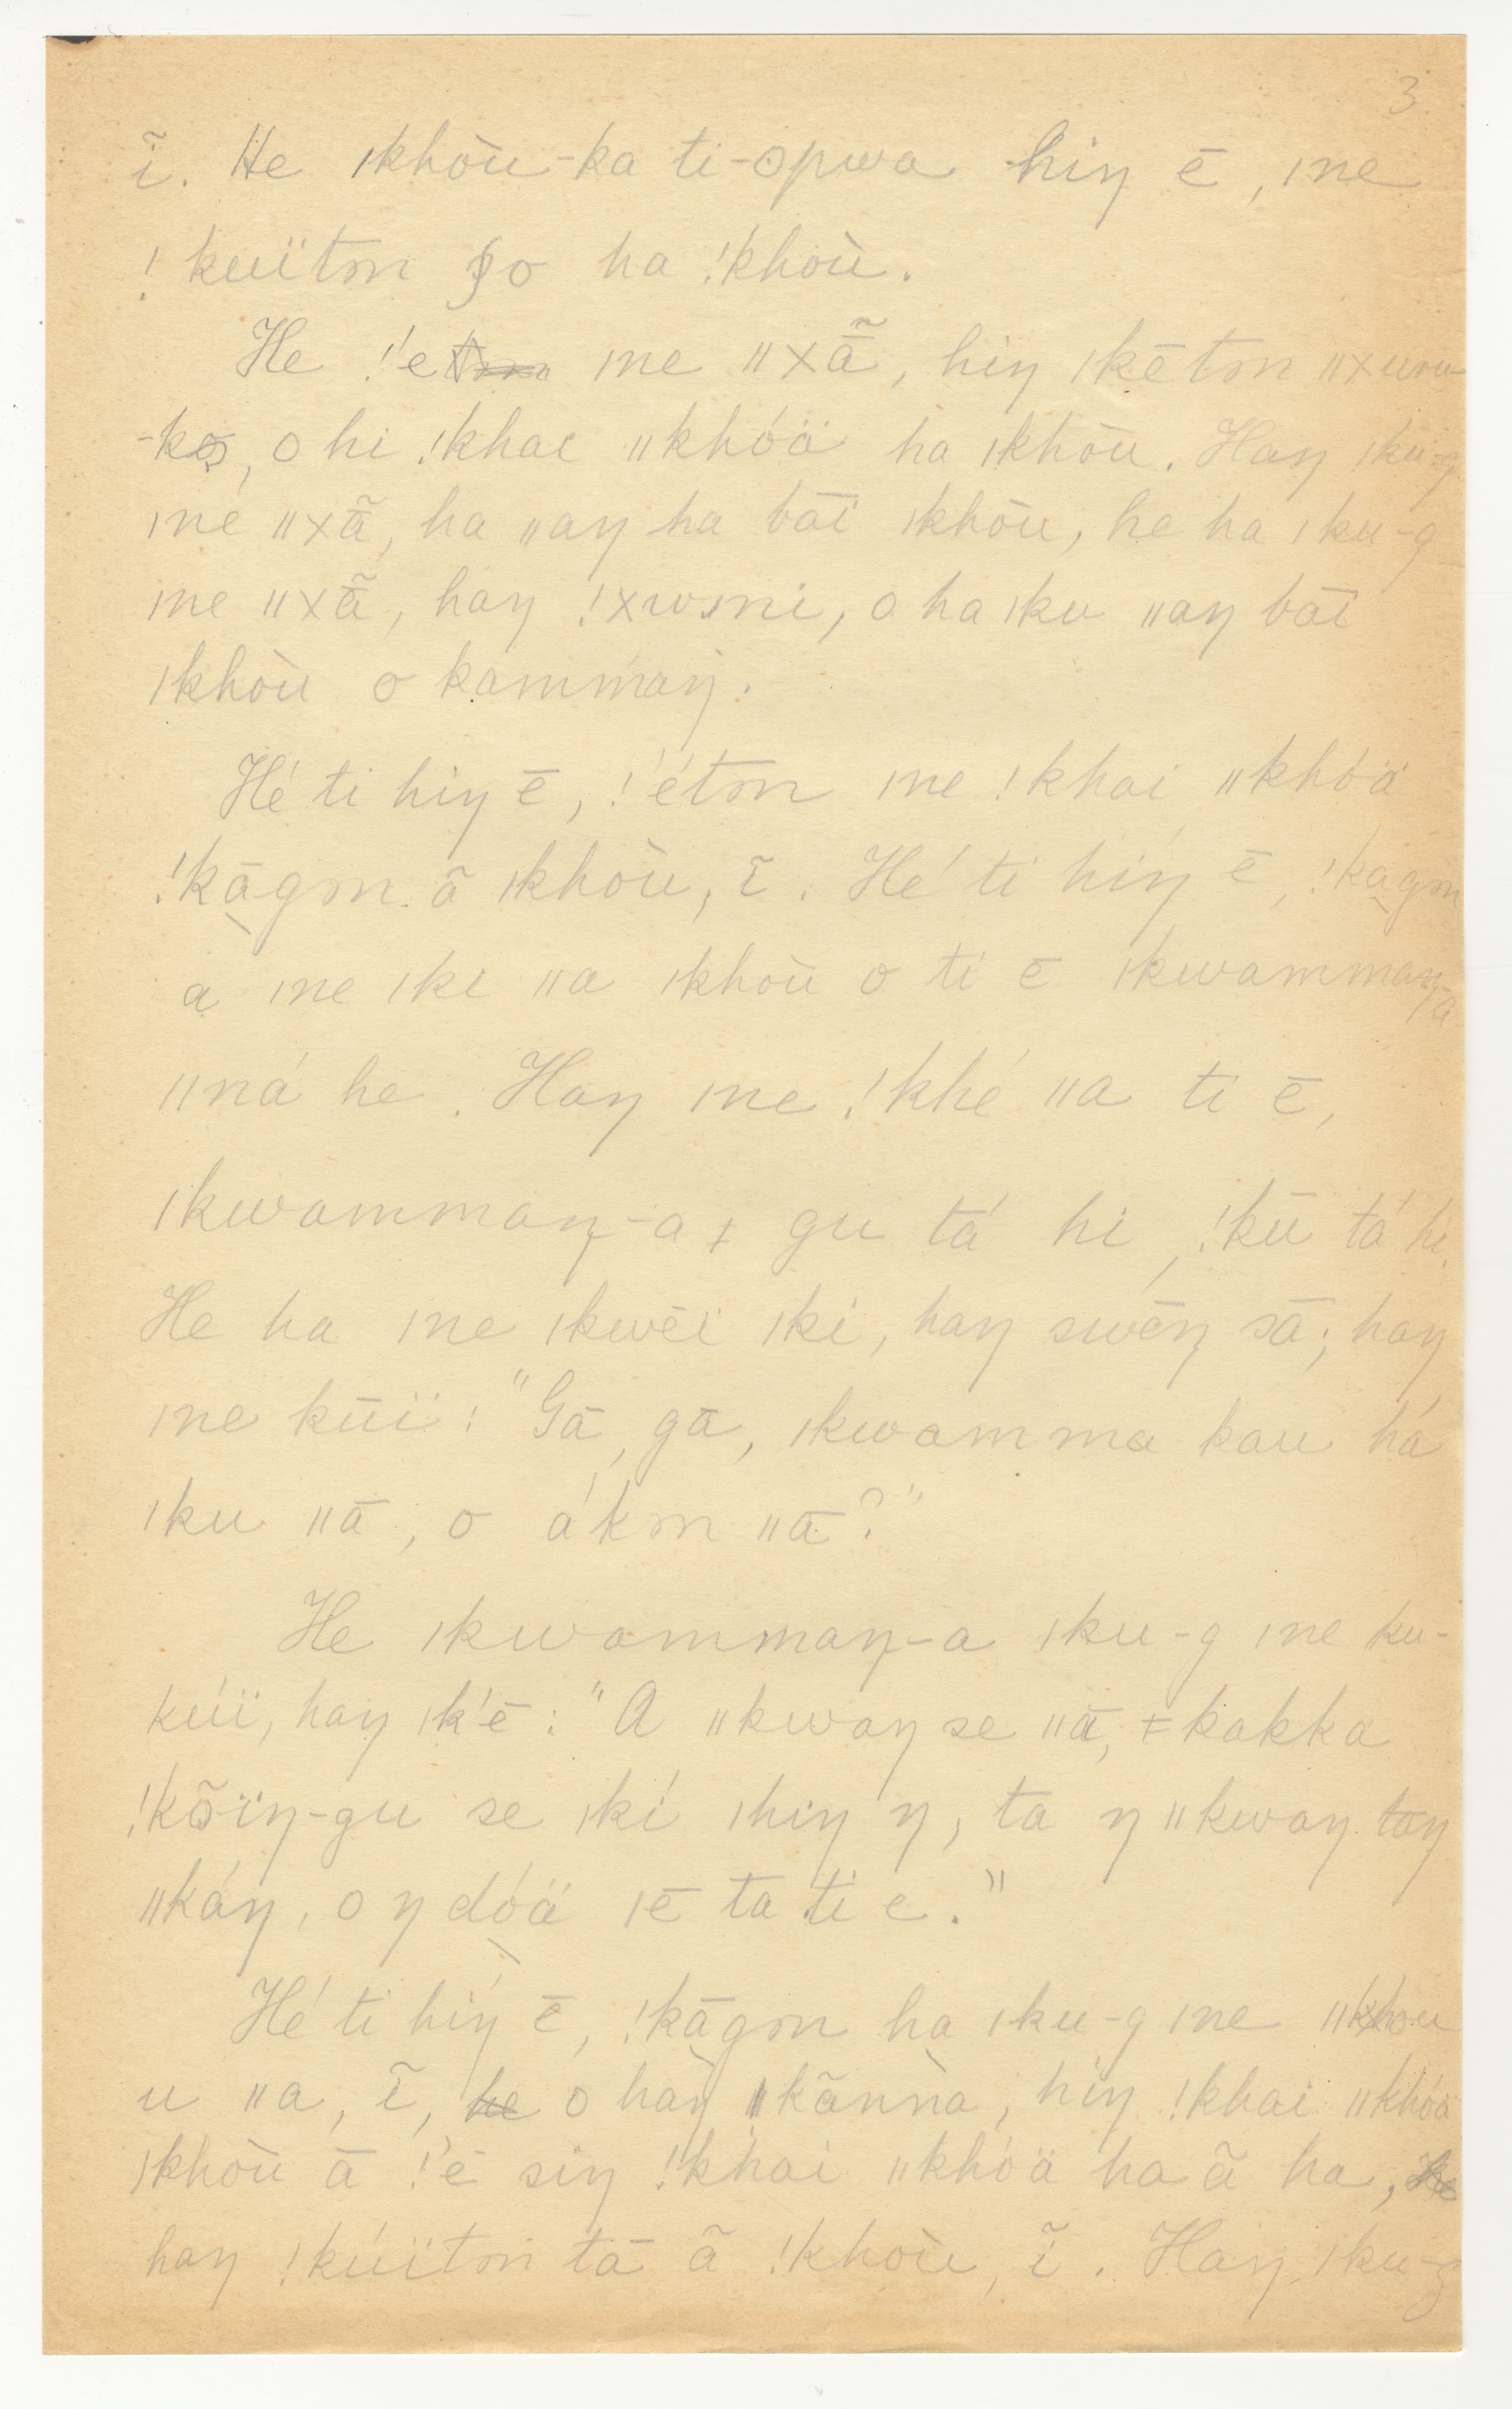 3
ĩ. He ǀkhòü-ka ti-opwa hiŋ ē, ǀne
!kuïtǝn ʘo ha !khòü.
He !'e ǀne ǁxã̄, hiŋ ǀkētǝn ǁxuru-
-kǝ, o hi !khae ǁkhóä ha ǀkhòü. Haŋ ǀku-g
ǀne ǁxã̄, ha ǁaŋ ha bāï ǀkhòü, he ha ǀku-g
ǀne ǁxã̄, haŋ !xwǝni, o ha ǀku ǁaŋ bāï
ǀkhòü o kammaŋ.
Hé ti hiŋ ē, !'étǝn ǀne !khai ǁkhóä
!kāgǝn ã ǀkhòü, ĩ. Hé ti híŋ ē, !kāgǝn
a ǀne ǀki ǁa ǀkhòü o ti ē ǀkwammaŋ-a
ǁná he. Haŋ ǀne !khé ǁa ti ē,
ǀkwammaŋ-a ǂ gu tá hi, !kū tá hi.
He ha ǀne ǀkwēï ǀki, haŋ swēŋ sā; haŋ
ǀne kūï: "Gā, gā, ǀkwamma kau há
ǀku ǁā, o ákǝn ǁā?"
He ǀkwammaŋ-a ǀku-g ǀne ku-
kúï, haŋ ǀk'ē: "A ǁkwaŋ se ǁā, ǂkakka
!kõïŋ-gu se ǀkí ǀhiŋ ŋ, ta ŋ ǁkwaŋ taŋ
ǁkáŋ, o ŋ dóä ǀē ta ti e."
Hé ti híŋ ē, !kāgǝn ha ǀku-g ǀne ǁkhou
u ǁa, ĩ, o haŋ ǁkãnnà, hiŋ !khai ǁkhóä
ǀkhòü ā !'ē siŋ !khai ǁkhóä ha ã ha,
haŋ !kúïtǝn tā ã !khòü, ĩ. Haŋ ǀku-g